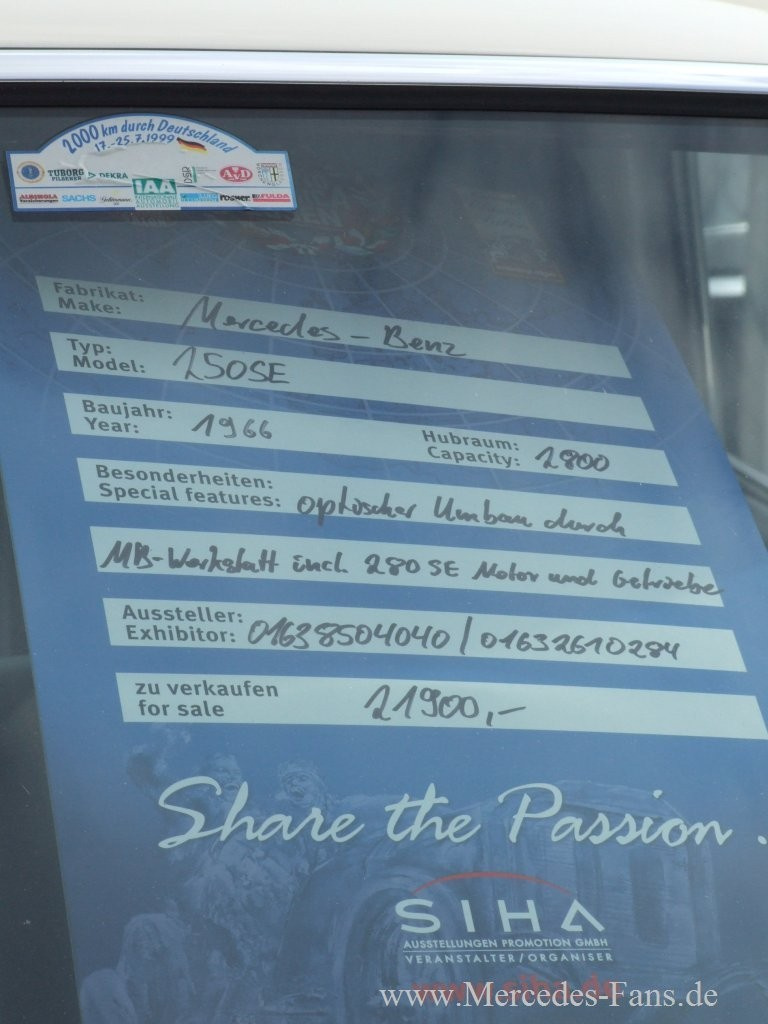 2000 km durch Deutschland
17.-25.7.1999
TUBORG PILSENER DEKRA IAA DSD AvD
ALBINGIA Versicherungen SACHS FULDA
Fabrikat:
Make: Mercedes-Benz
Typ:
Model: 250SE
Baujahr:
Year: 1966
Hubraum:
Capacity: 2800
Besonderheiten:
Special features: optischer Umbau durch
MB-Werkstatt incl. 280 SE Motor und Getriebe
Aussteller:
Exhibitor: 01638504040 / 01632610284
zu verkaufen
for sale 21900,-
Share the Passion .
SIHA
AUSSTELLUNGEN PROMOTION GMBH
VERANSTALTER/ORGANISER
www.siha.de
www.Mercedes-Fans.de